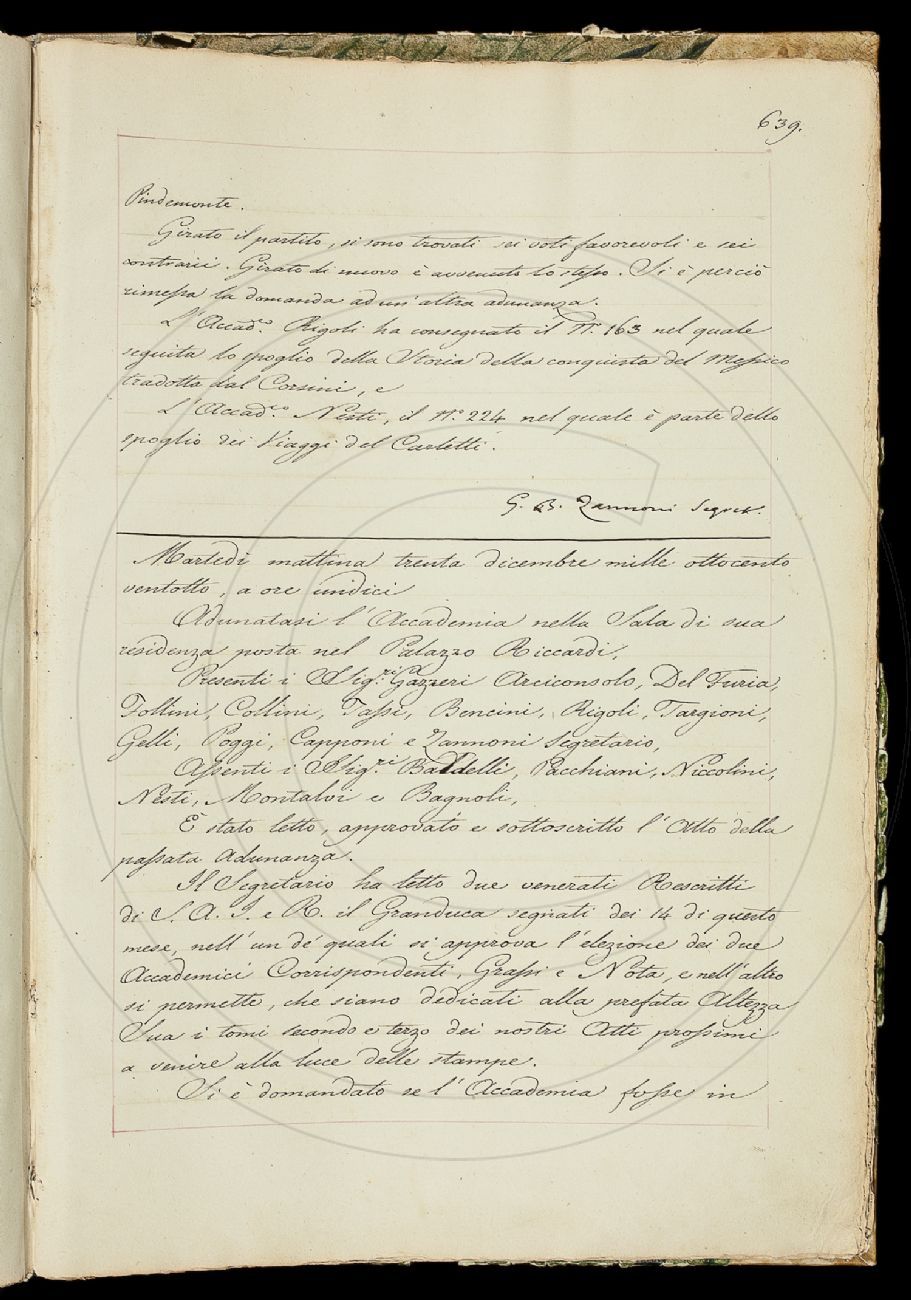 639.
Pindemonte.
Girato il partito, si sono trovati sei voti favorevoli e sei
contrarii. Girato di nuovo è avvenuto lo stesso. Si è perciò
rimessa la domanda ad un'altra adunanza.
L'Accad.co Rigoli ha consegnato il N.o 163 nel quale
seguita lo spoglio della Storia della conquista del Messico
tradotta dal Corsini, e
L'Accad.co Nesti, il N.o 224 nel quale è parte dello
spoglio dei Viaggi del Carletti.
G. B. Zannoni Segret.
Martedì mattina trenta dicembre mille ottocento
ventotto, a ore undici
Adunatasi l'Accademia nella Sala di sua
residenza posta nel Palazzo Riccardi,
Presenti i Sig.ri Gazzeri Arciconsolo, Del Furia,
Follini, Collini, Tassi, Bencini, Rigoli, Targioni,
Gelli, Poggi, Capponi e Zannoni Segretario,
Assenti i Sig.ri Baldelli, Pacchiani, Niccolini,
Nesti, Montalvi e Bagnoli,
È stato letto, approvato e sottoscritto l'Atto della
passata Adunanza.
Il Segretario ha letto due venerati Rescritti
di S. A. I. e R. il Granduca segnati dei 14 di questo
mese, nell'un de' quali si approva l'elezione dei due
Accademici Corrispondenti, Grassi e Nota, e nell'altro
si permette, che siano dedicati alla prefata Altezza
Sua i tomi secondo e terzo dei nostri Atti prossimi
a venire alla luce delle stampe.
Si è domandato se l'Accademia fosse in